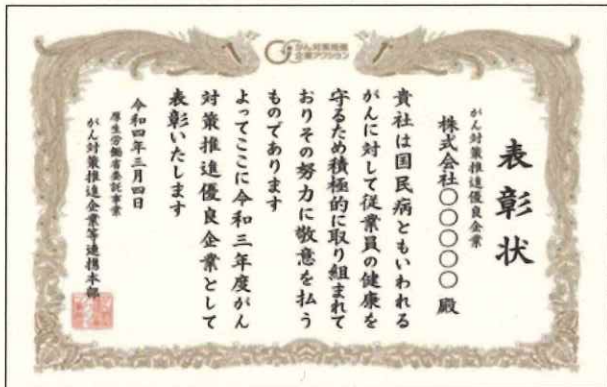 がん対策推進
企業アクション
表彰状
がん対策推進優良企業
株式会社○○○○○ 殿
貴社は国民病ともいわれる
がんに対して従業員の健康を
守るため積極的に取り組まれて
おりその努力に敬意を払う
ものであります
よってここに令和三年度がん
対策推進優良企業として
表彰いたします
令和四年三月四日
厚生労働省委託事業
がん対策推進企業等連携本部